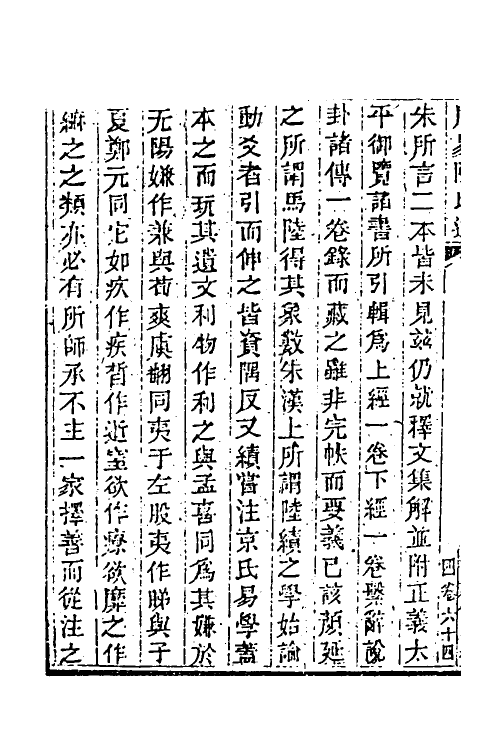 朱所言二本皆未見兹仍就釋文集解並附正義太
平御覽諸書所引輯為上經一卷下經一卷繫辭說
卦諸傳一卷錄而藏之雖非完帙而要義已該顔延
之所謂馬陸得其象數朱漢上所謂陸績之學始論
動爻者引而伸之皆資隅反又績嘗注京氏易學蓋
本之而玩其遺文利物作利之與孟喜同為其嫌於
无陽嫌作兼與荀爽虞翻同夷于左股夷作睇與子
夏鄭元同它如疚作疾晢作逝窒欲作𢥞欲靡之作
縻之之類亦必有所師承不主一家擇善而從注之
四卷六十四